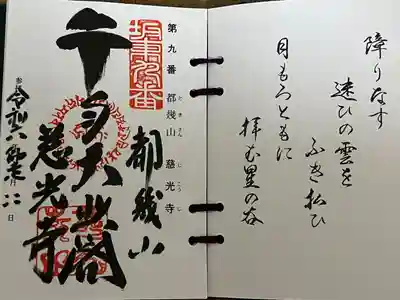 障りなす
迷ひの雲を
ふき払ひ
月もろともに
拝む星の谷
坂東九番
第九番 都幾山 慈光寺
都幾山
大悲閣
慈光寺
令和六年
日